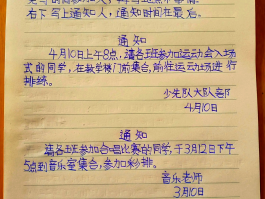 右下写上通知人，通知时间在最后。
通知
4月10日上午8点，请各班参加运动会入场
式的同学，在教学楼门前集合，前往运动场进行
排练。
少先队大队部
4月10日
通知
请各班参加合唱比赛的同学，于3月12日下午
5点到音乐室集合，参加彩排。
音乐老师
3月10日